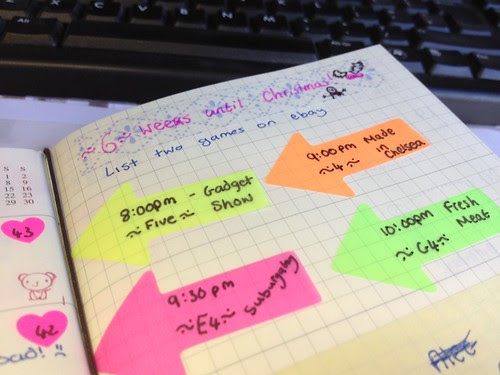 ~6~ weeks until Christmas!
List two games on ebay
9:00pm Made
~4~ in
Chelsea
8:00pm - Gadget
~Five~ Show
10:00pm Fresh
~C4~ Meat
9:30pm
~E4~ Suburgatory
S S
1 2
8 9
15 16
22 23
29 30
43
42